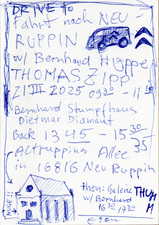 DRIVE TO
Fahrt nach NEU-
RUPPIN
w/ Bernhard Hüppe
THOMAS ZIPP
21 VII 2025 09 32 - 11
Bernhard Stumpfhaus
Dietmar Diamant
Back 13 45 - 15 30
Altruppiner Allee 35
in 16816 Neu Ruppin
then: Galerie THUMM
w/ Bernhard
16 30 17 30